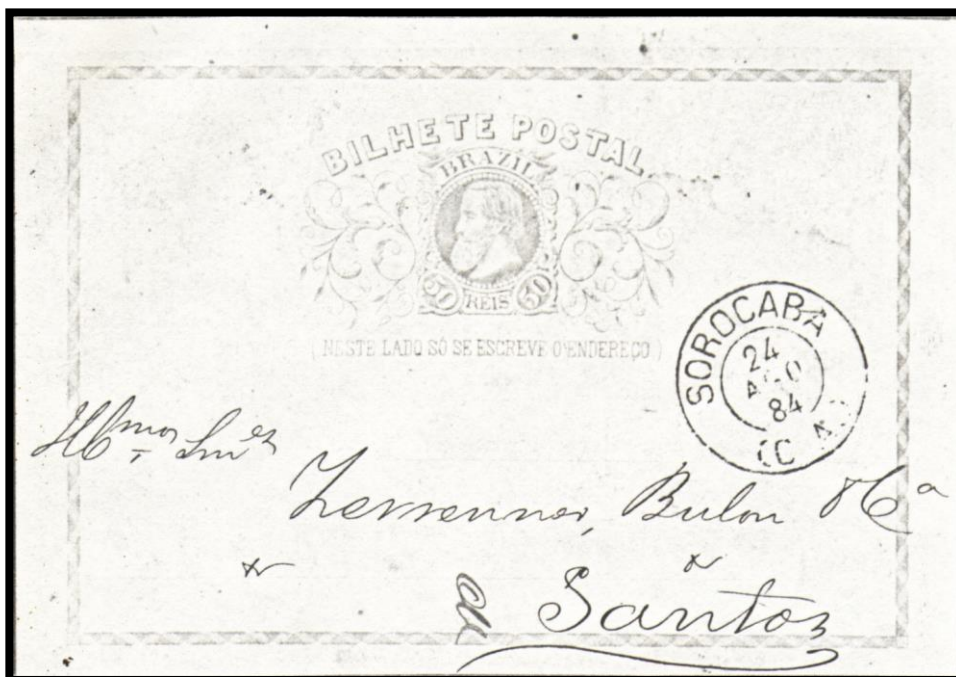 BILHETE POSTAL
BRAZIL
50 REIS 50
(NESTE LADO SÓ SE ESCREVE O ENDEREÇO)
SOROCABA
24
AGO
84
Illmos Snres
Bulow & Ca
Santos